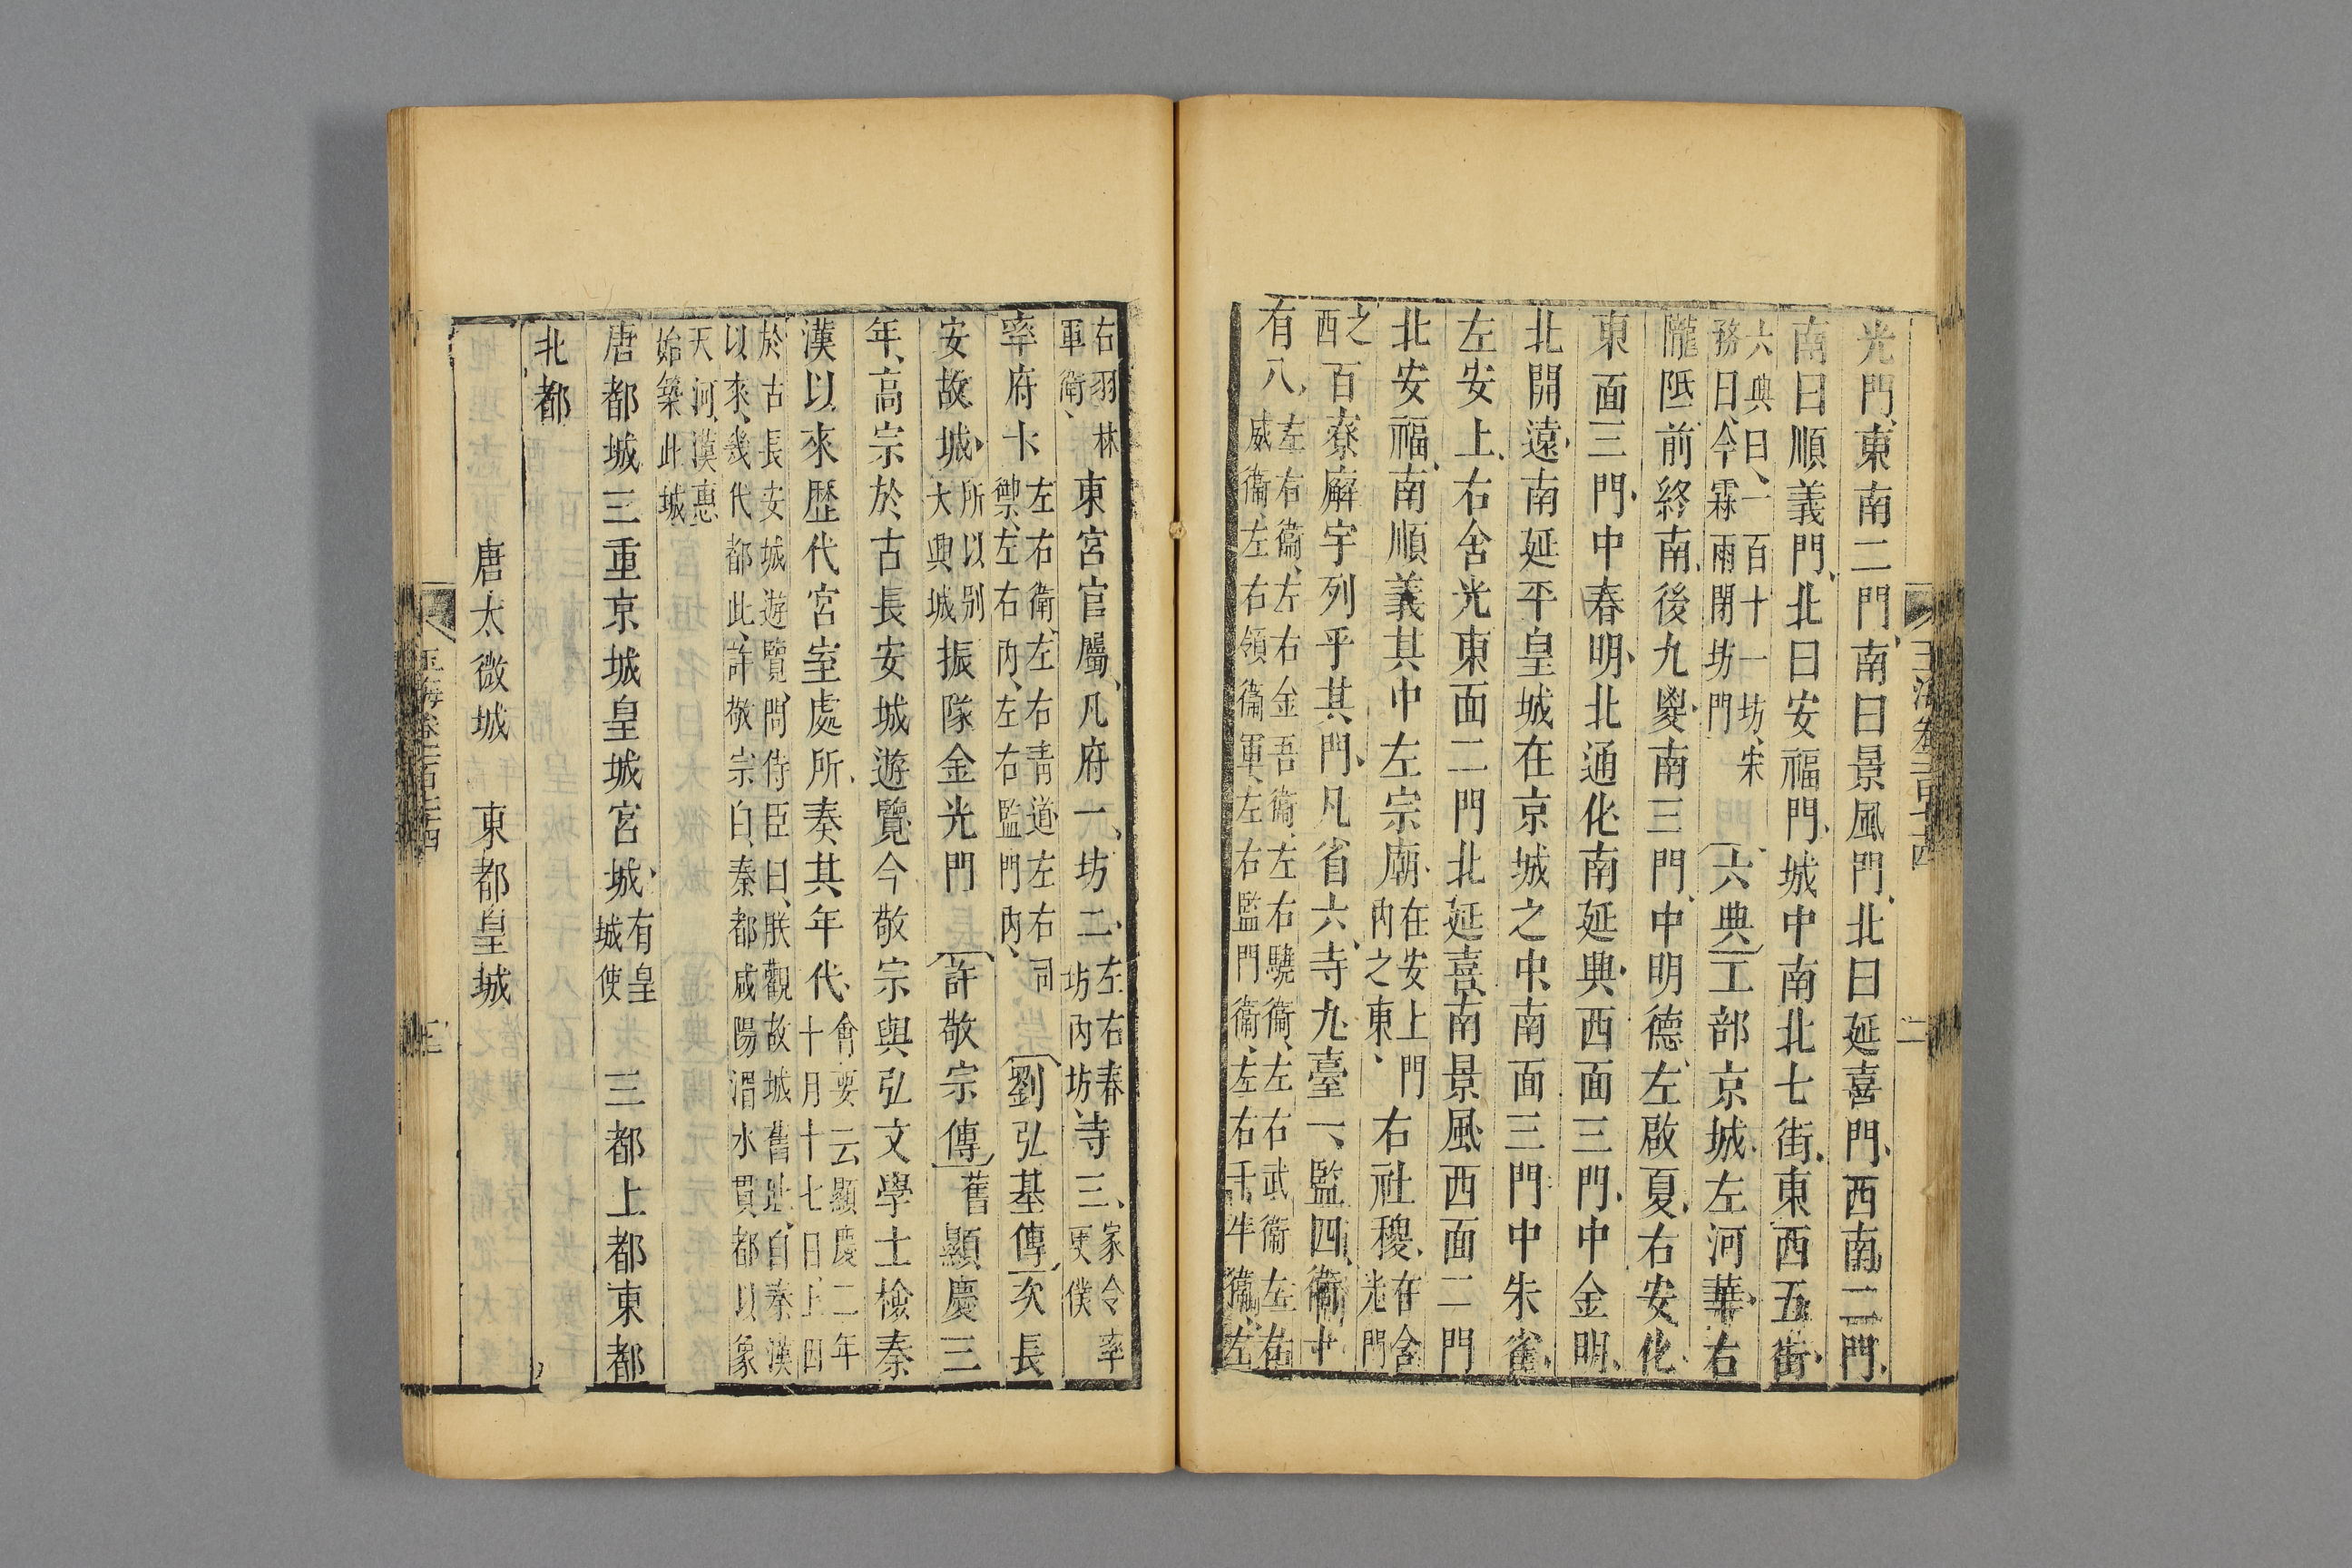 光門、東南二門、南曰景風門、北曰延喜門、西南二門、
南曰順義門、北曰安福門、城中南北七街、東西五街、
六典曰、一百十一坊、宋
務曰、今霖雨閉坊門
六典工部京城、左河華、右
隴陜、前終南、後九嵏、南三門、中明德、左啟夏、右安化、
東面三門、中春明、北通化、南延興、西面三門、中金明、
北開遠、南延平、皇城在京城之中、南面三門、中朱雀、
左安上、右含光、東面二門、北延喜、南景風、西面二門
北安福、南順義、其中左宗廟、
在安上門
內之東、
右社稷、
在含
光門
之
西
百寮廨宇列乎其門、凡省六、寺九、臺一、監四、衛十
有八、
左右衛、左右金吾衛、左右驍衛、左右武衛、左右
威衛、左右領衛軍、左右監門衛、左右千牛衛、左
右羽林
軍衛、
東宮官屬、凡府一、坊二、
左右春
坊內坊、
寺三、
家令率
更僕
率府十
左右衛、左右青道、左右司
禦、左右內、左右監門內、
劉弘基傳、次長
安故城、
所以別
大興城
振隊金光門
許敬宗傳
舊
顯慶三
年、高宗於古長安城遊覽、今敬宗與弘文學士檢秦
漢以來歷代宮室處所、奏其年代、
會要云顯慶二年
十月十七日上四
於古長安城遊覽、問侍臣曰、朕觀故城舊址、自秦漢
以來、幾代都此、許敬宗曰、秦都咸陽、渭水貫都、以象
天河、漢惠
始築此城
唐都城三重、京城皇城宮城、
有皇
城使
三都上都東都
北都
唐太微城　東都皇城
玉海卷一百七十四
二